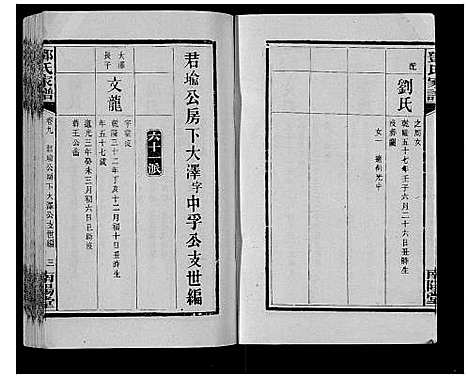 配
劉氏
之周女
乾隆五十七年壬子六月二十六丑時生
女一
南陽堂
君埨公房下大澤字中孚公支世編
六十一派
大澤
長子
文龍
乾隆三十二年丁亥十二月初十日丑時生
道光三年癸未三月初六日巳時沒
年五十七歲
葬王公凼
鄧氏家譜
卷九
君埨公房下大澤公支世編
三
南陽堂